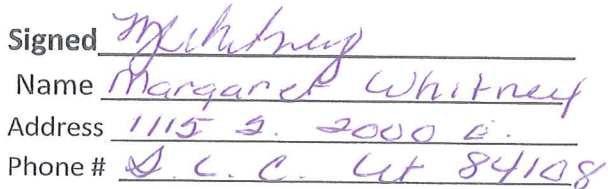 Signed MWhitney
Name Margaret Whitney
Address 1115 S. 2000 E.
Phone # S. L. C. Ut 84108